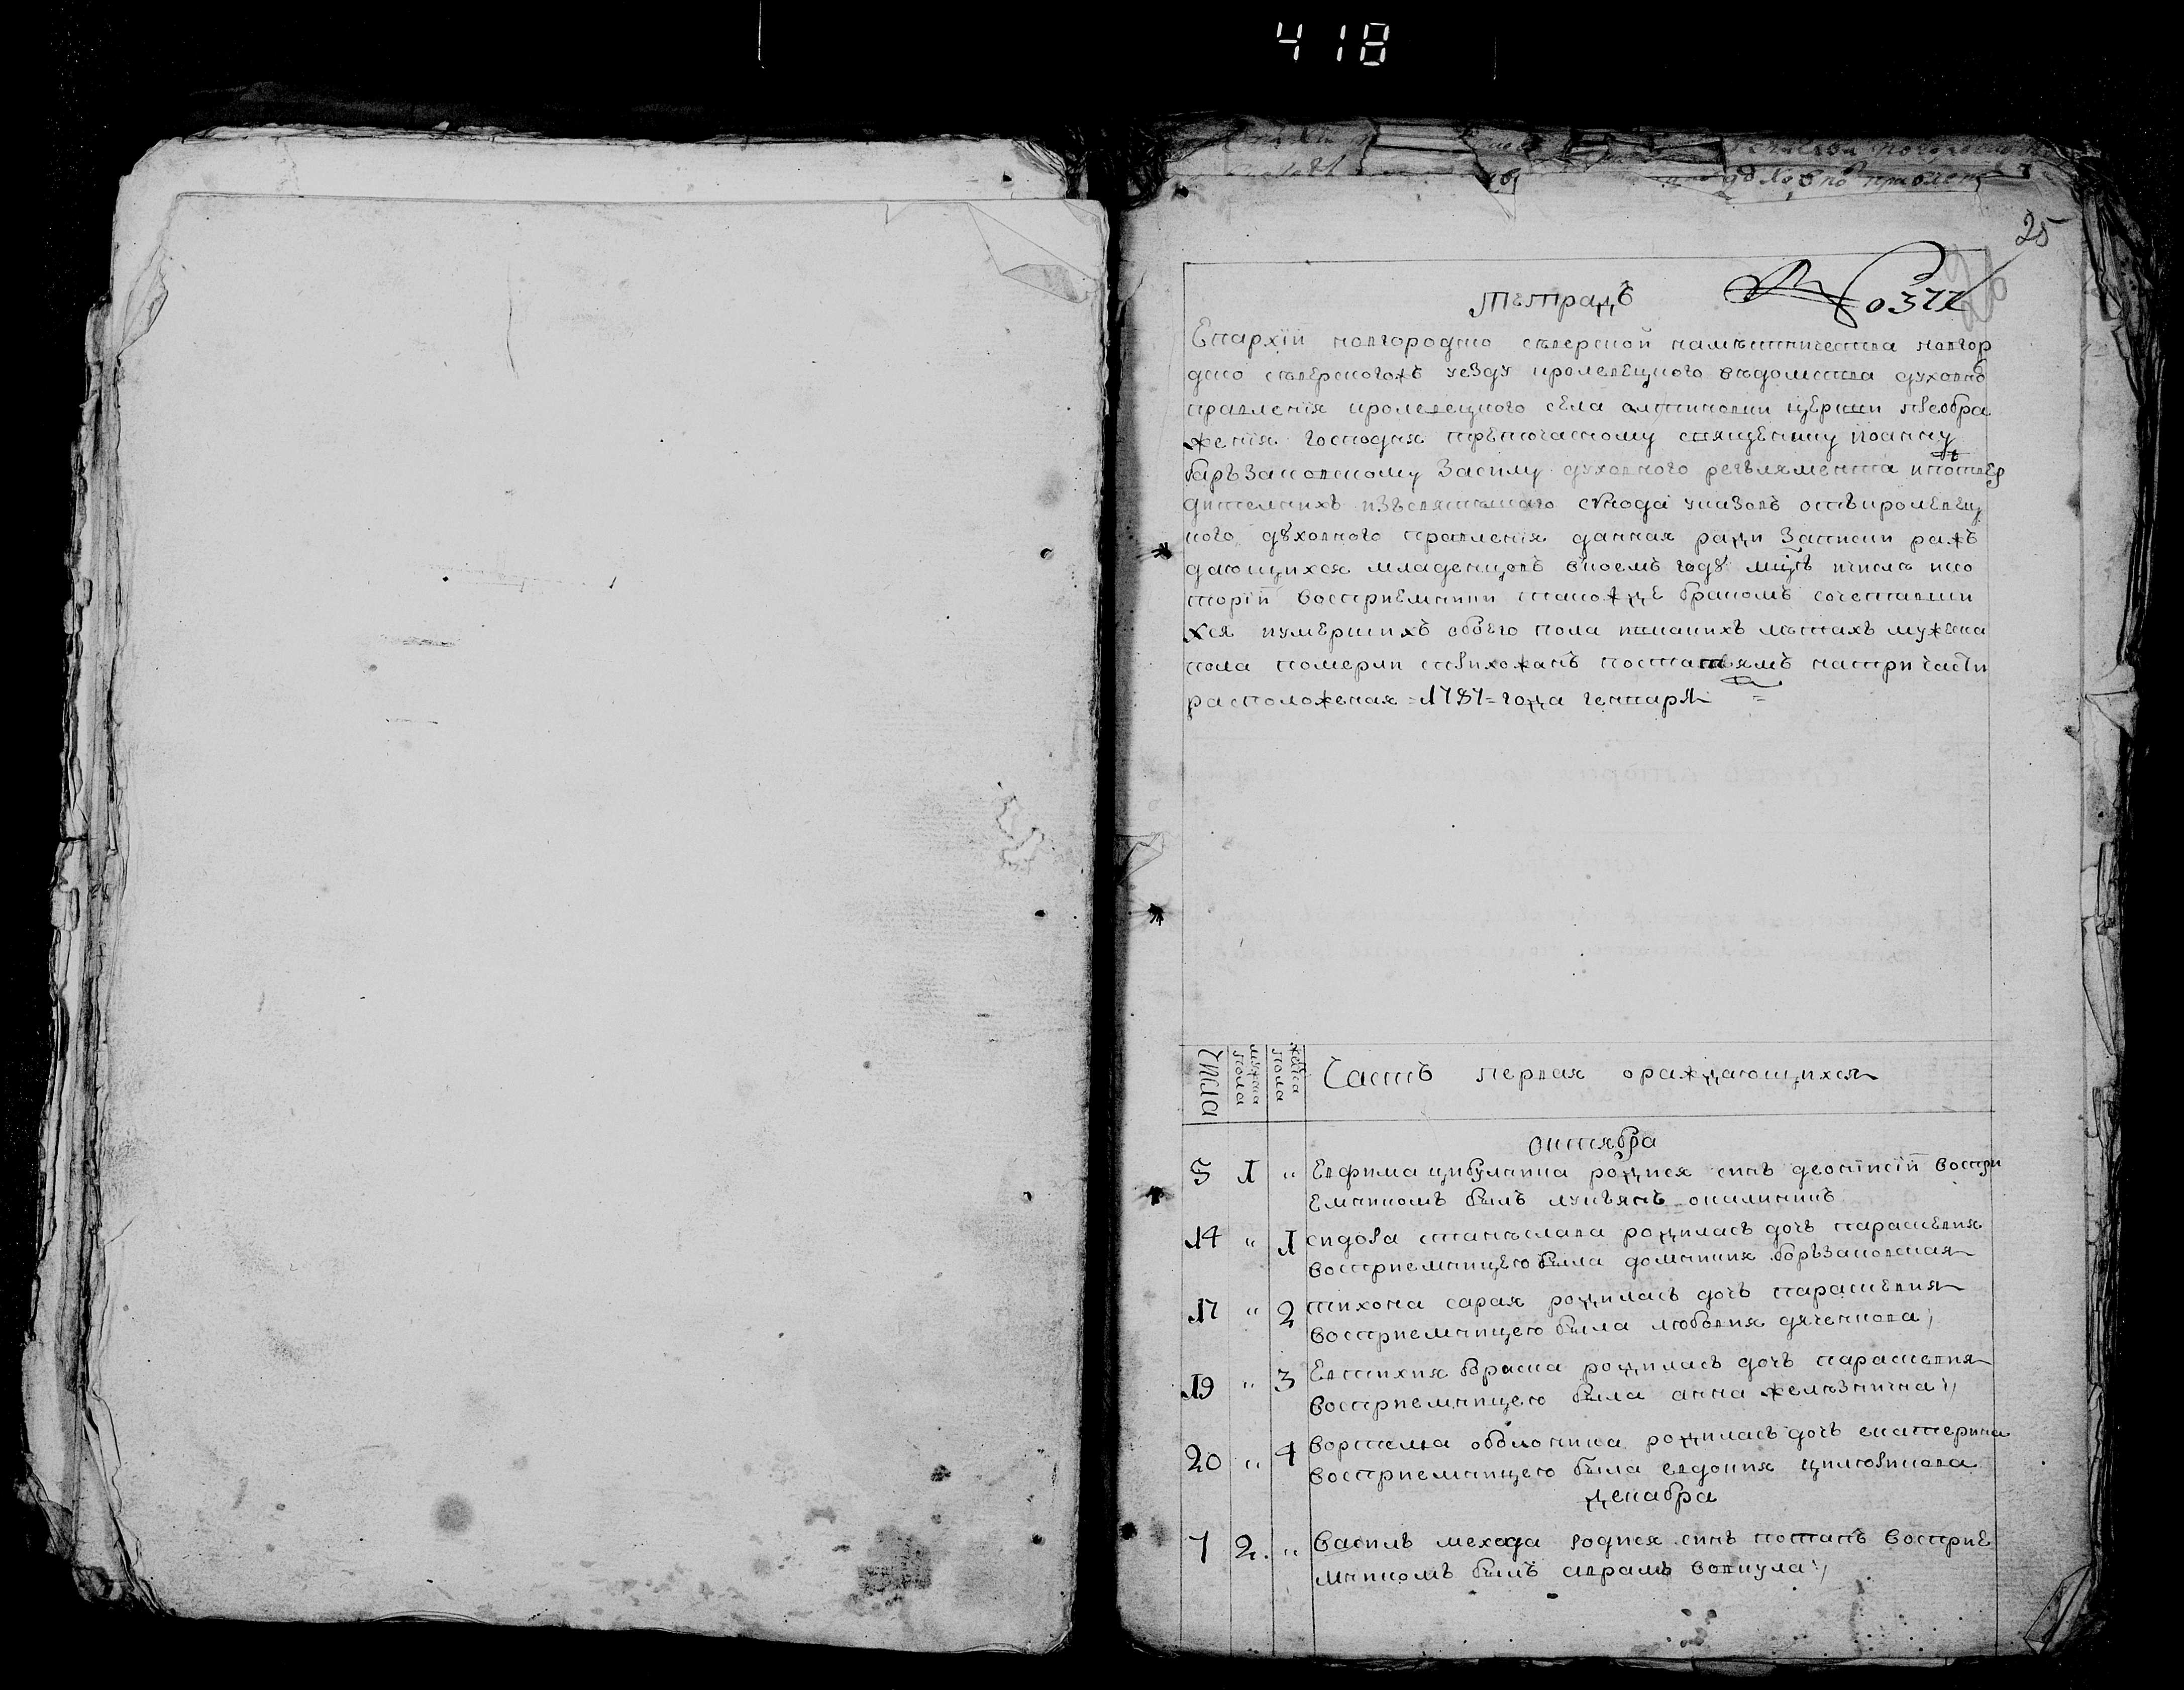 418
25
тѣтрадъ
Епархіи новгородко сѣверской намѣстничества новгор
дко сѣверскогожъ уезду кролевецкого вѣдомства духовно
правленія кролевецкого села алтиновки церкви преобра
женія господня пречесному священику іоанну
барѣзаковскому Засилу духовного регълямента ипотвер
дителнихъ изъсвятѣшаго сѵнода указовъ отъкролевец
кого дꙋховного правленія данная ради Записки раж
дающихся младенцовъ вкоемъ годꙋ мцѣ ичисла ико
торіи восприемники такожде бракомъ сочетавши
хся иумершихъ обоего пола икакихъ лѣтахъ мужска
пола померли прихожанъ постатямъ натри части
расположеная =1787= года генваря =
числа
мужска пола
женска пола
Частъ первая ораждающихся
октября
5 1 " Евфима цибулника родился синъ деонисій воспри
емникомъ былъ лукъянъ опалинникъ
14 " 1 сидора станѣслава родиласъ дочъ парасковия
восприемницею была домникия борѣзаковская
17 " 2 тихона сарая родиласъ дочъ парасковия
восприемницею была любовия дяченкова
19 " 3 Евтихия браша родиласъ дочъ парасковия
восприемницею была анна желѣзничка
20 " 4 ворѳемея оболоника родиласъ дочъ екатерина
восприемницею была евдокия цилюрикова
декабра
7 2. " василъ мехеда родился синъ потапъ восприе
мникомъ былъ аврамъ вовкула